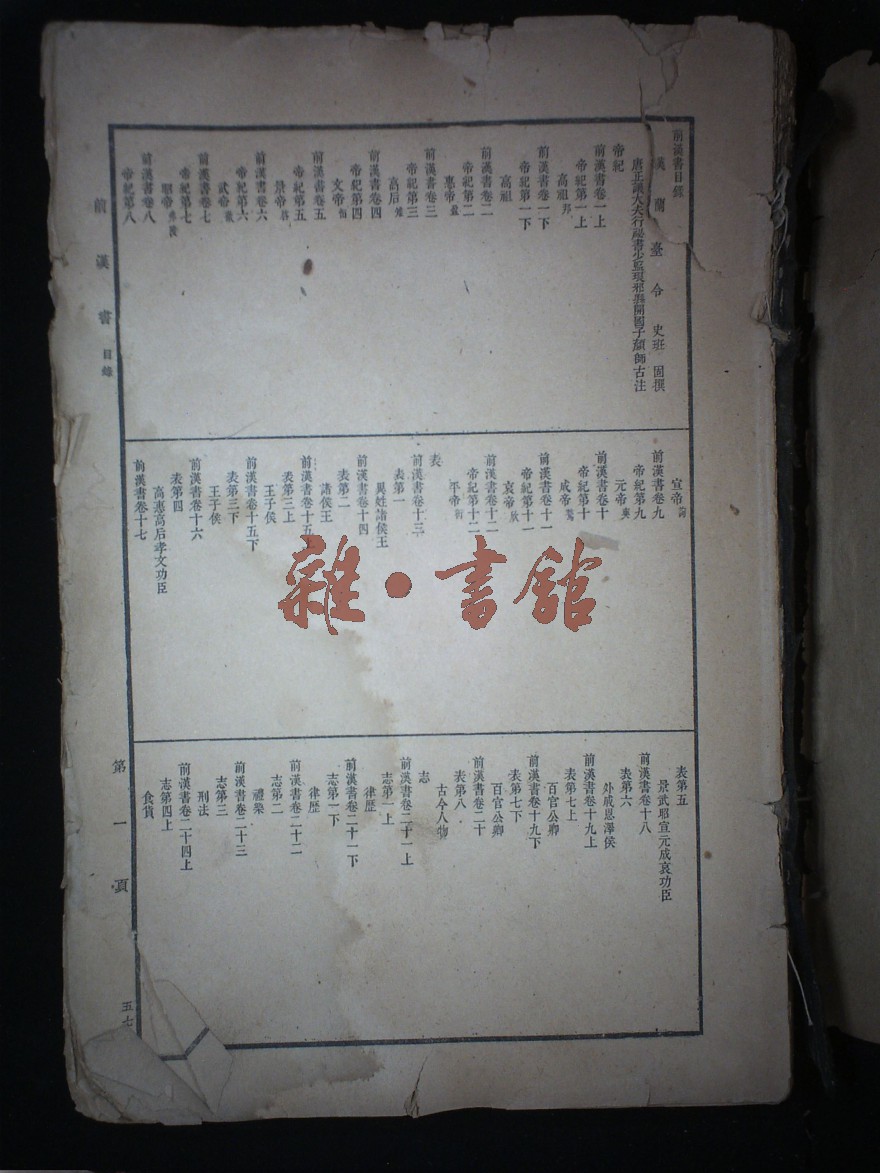 前漢書目錄
漢蘭臺令史班固撰
唐正議大夫行祕書少監琅邪縣開國子顏師古注
帝紀
前漢書卷一上
帝紀第一上
高祖邦
前漢書卷一下
帝紀第一下
高祖
前漢書卷二
帝紀第二
惠帝盈
前漢書卷三
帝紀第三
高后雉
前漢書卷四
帝紀第四
文帝恒
前漢書卷五
帝紀第五
景帝啓
前漢書卷六
帝紀第六
武帝徹
前漢書卷七
帝紀第七
昭帝弗陵
前漢書卷八
帝紀第八
宣帝詢
前漢書卷九
帝紀第九
元帝奭
前漢書卷十
帝紀第十
成帝驁
前漢書卷十一
帝紀第十一
哀帝欣
前漢書卷十二
帝紀第十二
平帝衎
表
前漢書卷十三
表第一
異姓諸侯王
前漢書卷十四
表第二
諸侯王
前漢書卷十五上
表第三上
王子侯
前漢書卷十五下
表第三下
王子侯
前漢書卷十六
表第四
高惠高后孝文功臣
前漢書卷十七
表第五
景武昭宣元成哀功臣
前漢書卷十八
表第六
外戚恩澤侯
前漢書卷十九上
表第七上
百官公卿
前漢書卷十九下
表第七下
百官公卿
前漢書卷二十
表第八
古今人物
志
前漢書卷二十一上
志第一上
律歷
前漢書卷二十一下
志第一下
律歷
前漢書卷二十二
志第二
禮樂
前漢書卷二十三
志第三
刑法
前漢書卷二十四上
志第四上
食貨
前漢書 目錄
第一頁
五七
雜·書館